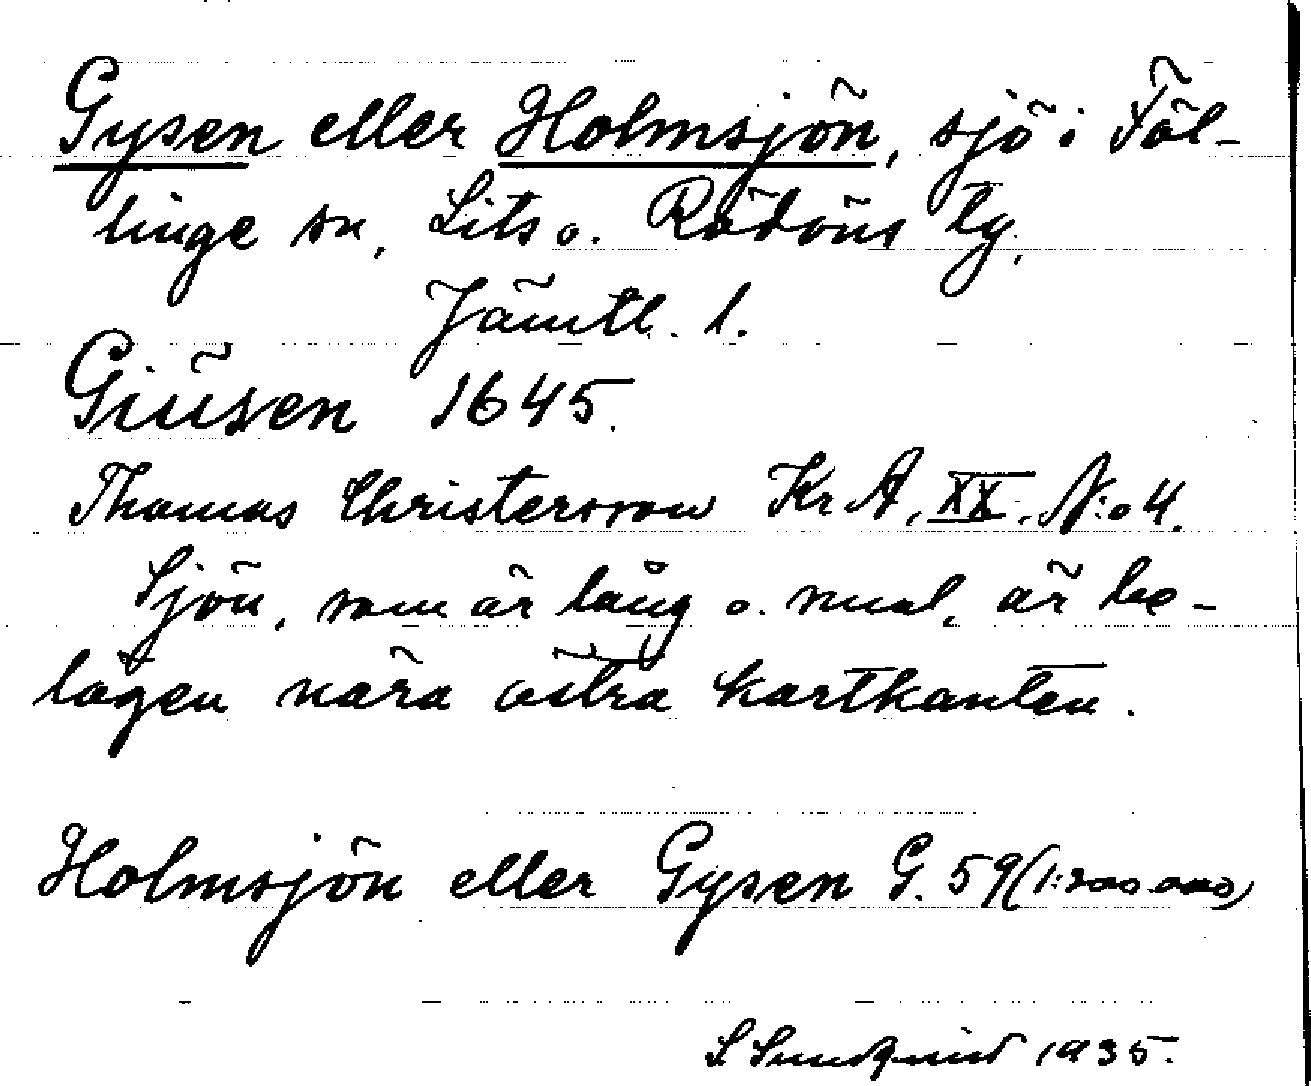 Gysen eller Holmsjön, sjö i Föl-
linge sn, Lits o. Rödöns tg,
Jämtl. l.
Giüsen 1645.
Thomas Christersson Kr A, XX, N:o 4.
Sjön, som är lång o. smal, är be-
lägen nära östra kartkanten.
Holmsjön eller Gysen G. 59 (1:200.000)
S. Sundqvist 1935.